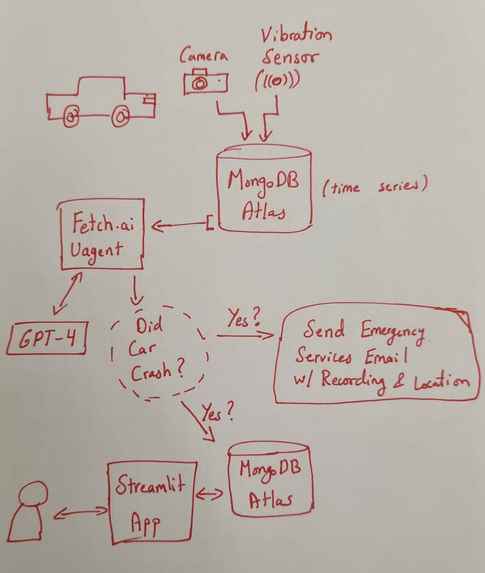 Camera
Vibration
Sensor
MongoDB
Atlas
(time series)
Fetch.ai
Uagent
GPT-4
Did
Car
Crash?
Yes?
Send Emergency
Services Email
w/ Recording & Location
Yes?
MongoDB
Atlas
Streamlit
App